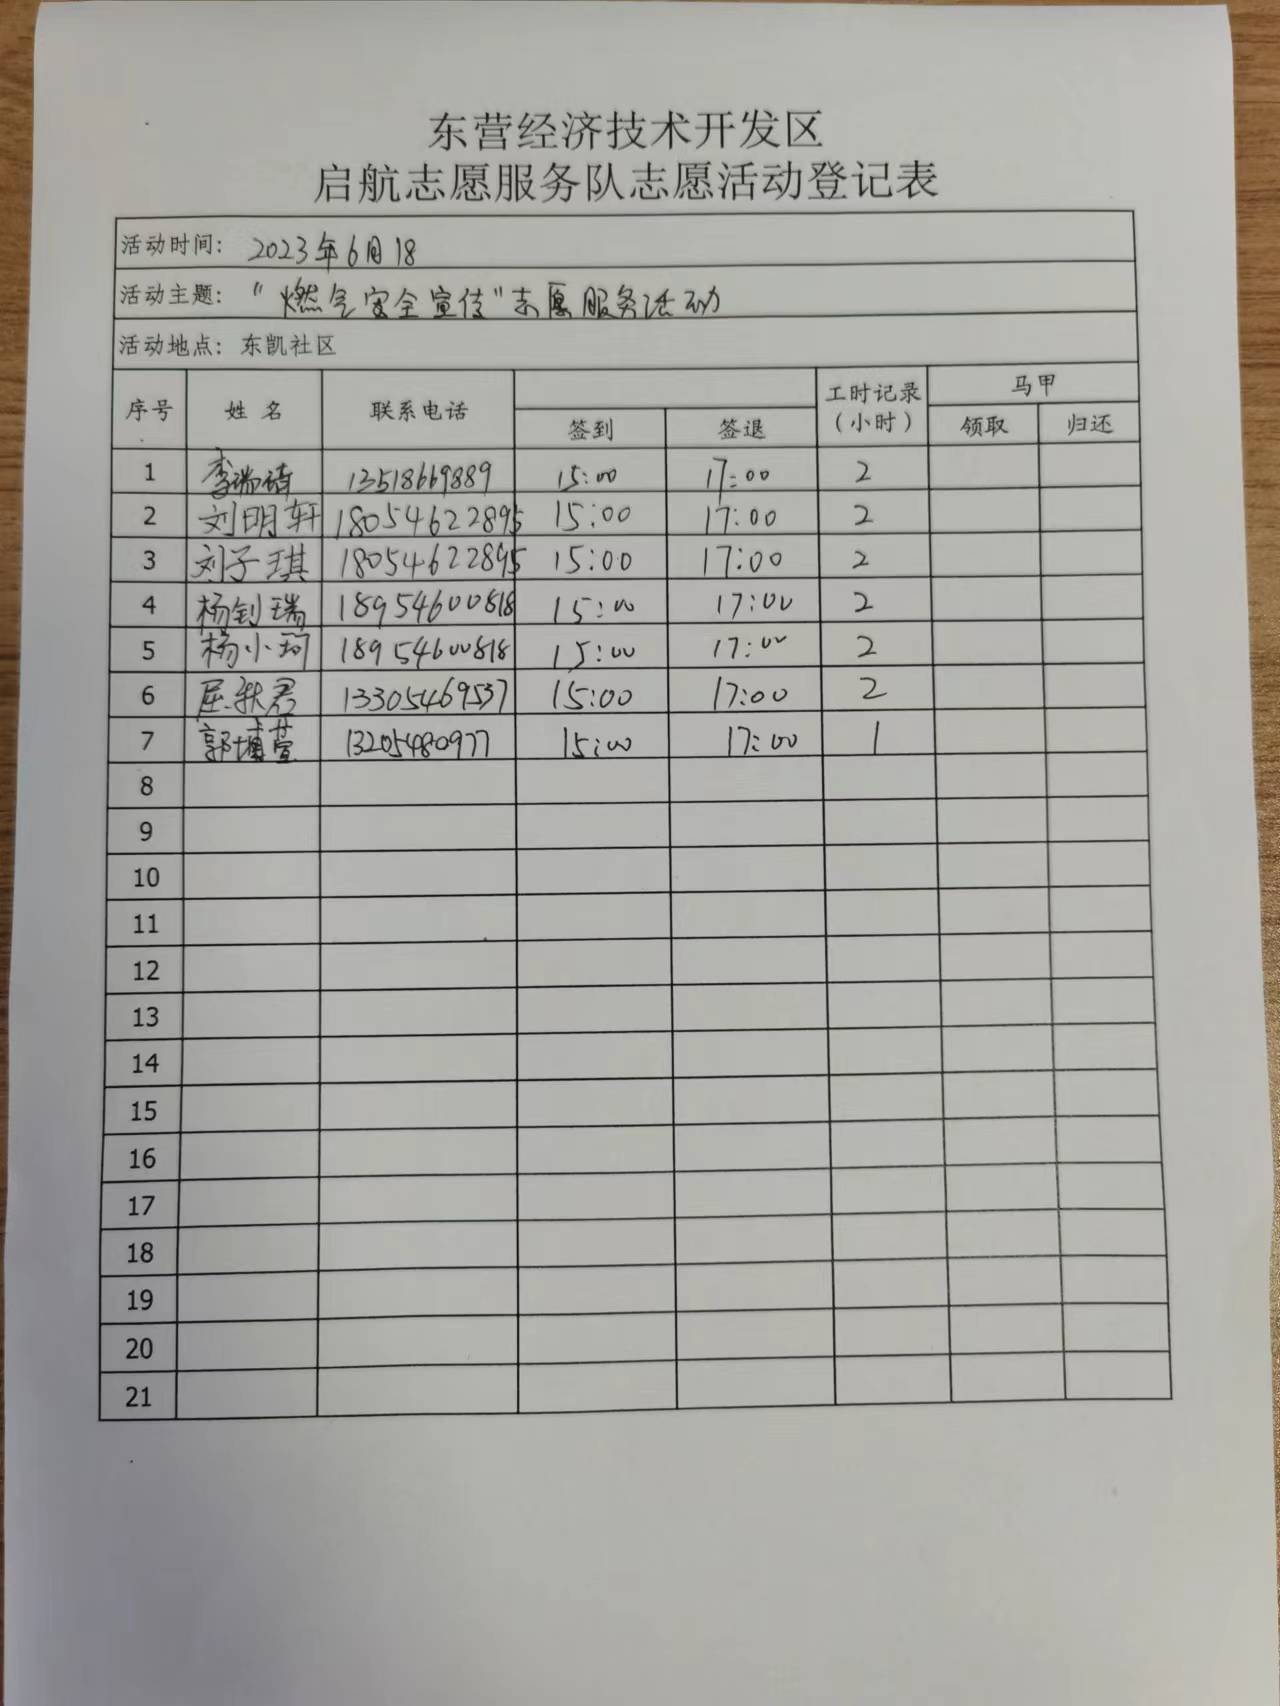 东营经济技术开发区
启航志愿服务队志愿活动登记表
活动时间： 2023年6月18
活动主题： "燃气安全宣传"志愿服务活动
活动地点：东凯社区
序号 姓 名 联系电话 工时记录（小时） 马甲
签到 签退 领取 归还
1 李瑞琦 13518669889 15:00 17:00 2
2 刘明轩 18054622895 15:00 17:00 2
3 刘子琪 18054622895 15:00 17:00 2
4 杨钊瑞 18954600818 15:00 17:00 2
5 杨小珂 18954600818 15:00 17:00 2
6 屈秋君 13305469537 15:00 17:00 2
7 郭 13205480977 15:00 17:00 1
8
9
10
11
12
13
14
15
16
17
18
19
20
21